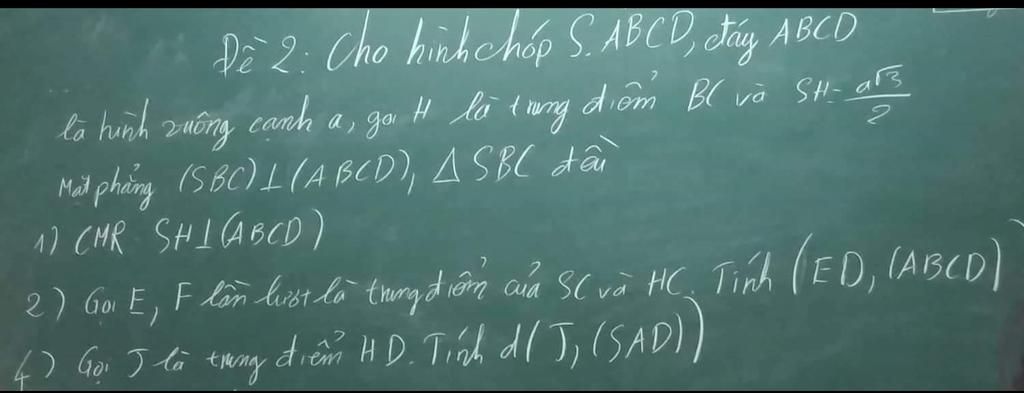 Đề 2: Cho hình chóp S.ABCD, đáy ABCD
là hình vuông cạnh a, gọi H là trung điểm BC và SH = a√3/2
Mặt phẳng (SBC)⊥(ABCD), △SBC đều
1) CMR SH⊥(ABCD)
2) Gọi E, F lần lượt là trung điểm của SC và HC. Tính (ED, (ABCD)
4) Gọi J là trung điểm HD. Tính d(J, (SAD))